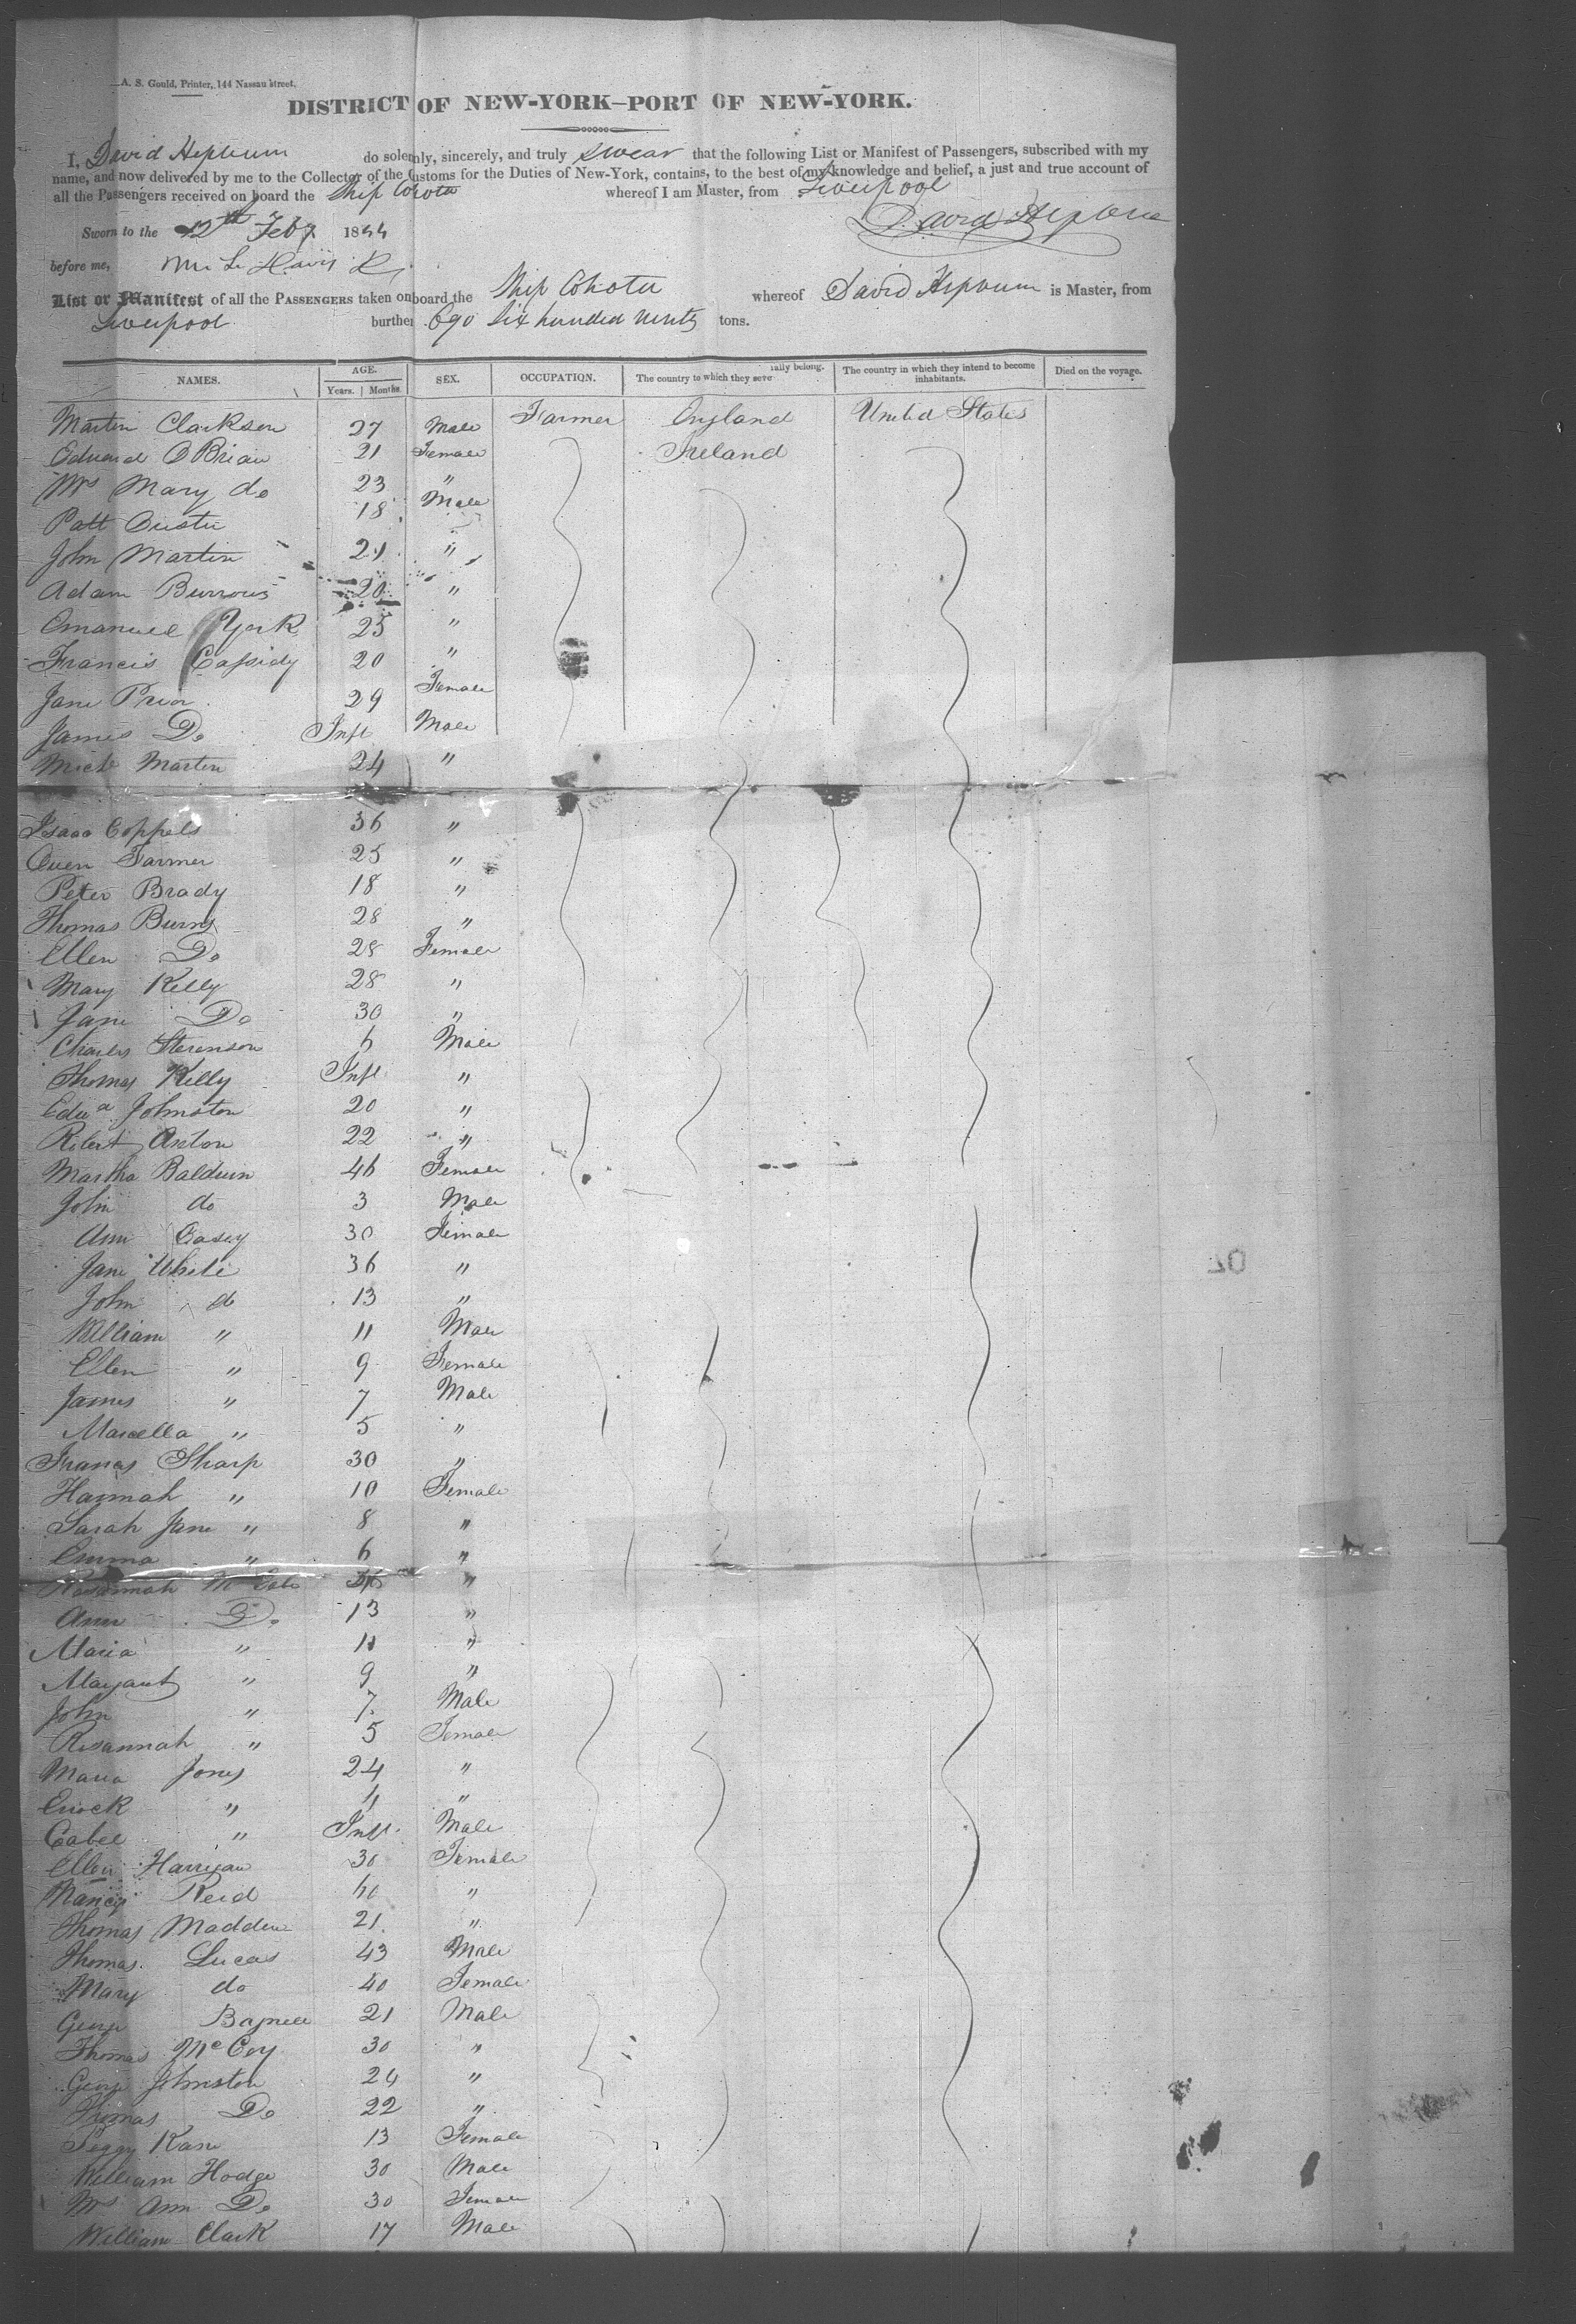 A. S. Gould, Printer, 144 Nassau street.
DISTRICT OF NEW-YORK—PORT OF NEW-YORK.
I, David Hepburn do solemnly, sincerely, and truly swear that the following List or Manifest of Passengers, subscribed with my
name, and now delivered by me to the Collector of the Customs for the Duties of New-York, contains, to the best of my knowledge and belief, a just and true account of
all the Passengers received on board the Ship Cohota whereof I am Master, from Liverpool
David Hepburn
Sworn to the 12th Feby 1844
before me,
List or Manifest of all the PASSENGERS taken on board the Ship Cohota whereof David Hepburn is Master, from
Liverpool burthen 690 Six hundred ninety tons.
NAMES. AGE. Years. Months. SEX. OCCUPATION. The country to which they seve rally belong. The country in which they intend to become inhabitants. Died on the voyage.
Martin Clarkson 27 Male Farmer England United States
Edward O Brian 21 Female Ireland
Mrs Mary do 23 "
Patt 18 Male
John Martin 21 "
Adam Burrows 20 "
Emanuel York 25 "
Francis Cassidy 20 "
Jane Prior 29 Female
James Do Inft Male
Michl Martin 24 "
Isaac Coppels 36 "
Owen Farmer 25 "
Peter Brady 18 "
Thomas Burns 28 "
Ellen Do 28 Female
Mary Kelly 28 "
Jane Do 30 "
Charles Stevenson 6 Male
Thomas Kelly Inft "
Edwd Johnston 20 "
Robert Axton 22 "
Martha Baldwin 46 Female
John do 3 Male
Ann Casey 30 Female
Jane White 36 "
John do 13 "
William " 11 Male
Ellen " 9 Female
James " 7 Male
Marcella " 5 "
Frances Sharp 30 "
Hannah " 10 Female
Sarah Jane " 8 "
Emma " 6 "
Rosannah Mc 36 "
Ann Do 13 "
Maria " 11 "
Margaret " 9 "
John " 7 Male
Rosannah " 5 Female
Maria Jones 24 "
Enock " 11 "
Cabel " Inft Male
Ellen Harrigan 30 Female
Nancy Reid 60 "
Thomas Madden 21 "
Thomas Lucas 43 Male
Mary do 40 Female
George Bagnell 21 Male
Thomas McCoy 30 "
George Johnston 24 "
Thomas Do 22 "
Peggy Kane 13 Female
William Hodge 30 Male
Mrs Ann Do 30 Female
William Clark 17 Male